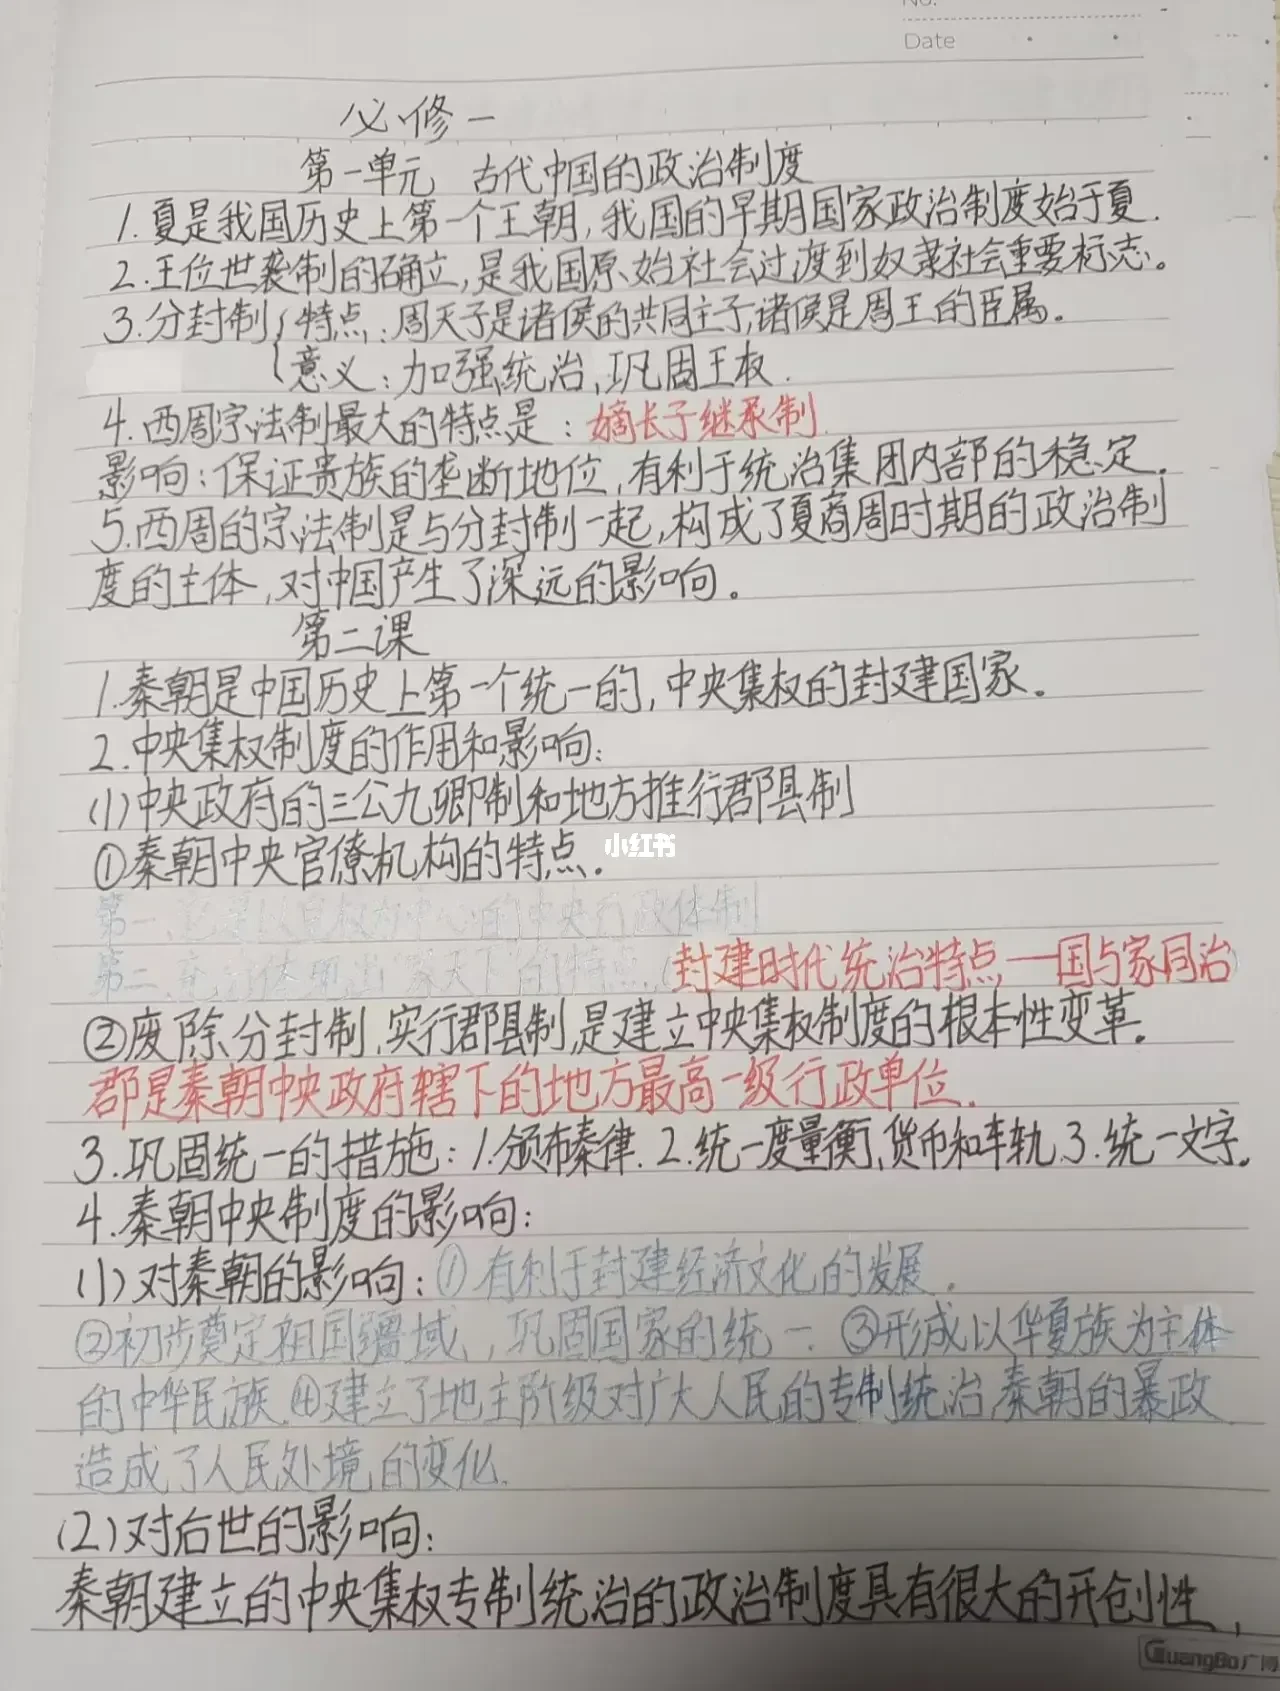 No.
Date
必修一
第一单元 古代中国的政治制度
1.夏是我国历史上第一个王朝,我国的早期国家政治制度始于夏.
2.王位世袭制的确立,是我国原始社会过渡到奴隶社会重要标志。
3.分封制{特点:周天子是诸侯的共同主子,诸侯是周王的臣属。
意义:加强统治,巩固王权.
4.西周宗法制最大的特点是:嫡长子继承制.
影响:保证贵族的垄断地位,有利于统治集团内部的稳定.
5.西周的宗法制是与分封制一起,构成了夏商周时期的政治制
度的主体,对中国产生了深远的影响。
第二课
1.秦朝是中国历史上第一个统一的,中央集权的封建国家。
2.中央集权制度的作用和影响:
(1)中央政府的三公九卿制和地方推行郡县制
①秦朝中央官僚机构的特点.
小红书
第一,以皇权为中心的中央行政体制
第二,充分体现出“家天下”的特点.(封建时代统治特点—国与家同治)
②废除分封制,实行郡县制,是建立中央集权制度的根本性变革.
郡是秦朝中央政府辖下的地方最高一级行政单位.
3.巩固统一的措施:1.颁布秦律.2.统一度量衡,货币和车轨.3.统一文字。
4.秦朝中央制度的影响:
(1)对秦朝的影响:①有利于封建经济文化的发展.
②初步奠定祖国疆域,巩固国家的统一.③形成以华夏族为主体
的中华民族.④建立了地主阶级对广大人民的专制统治,秦朝的暴政
造成了人民处境的变化.
(2)对后世的影响:
秦朝建立的中央集权专制统治的政治制度具有很大的开创性,
GuangBo广博